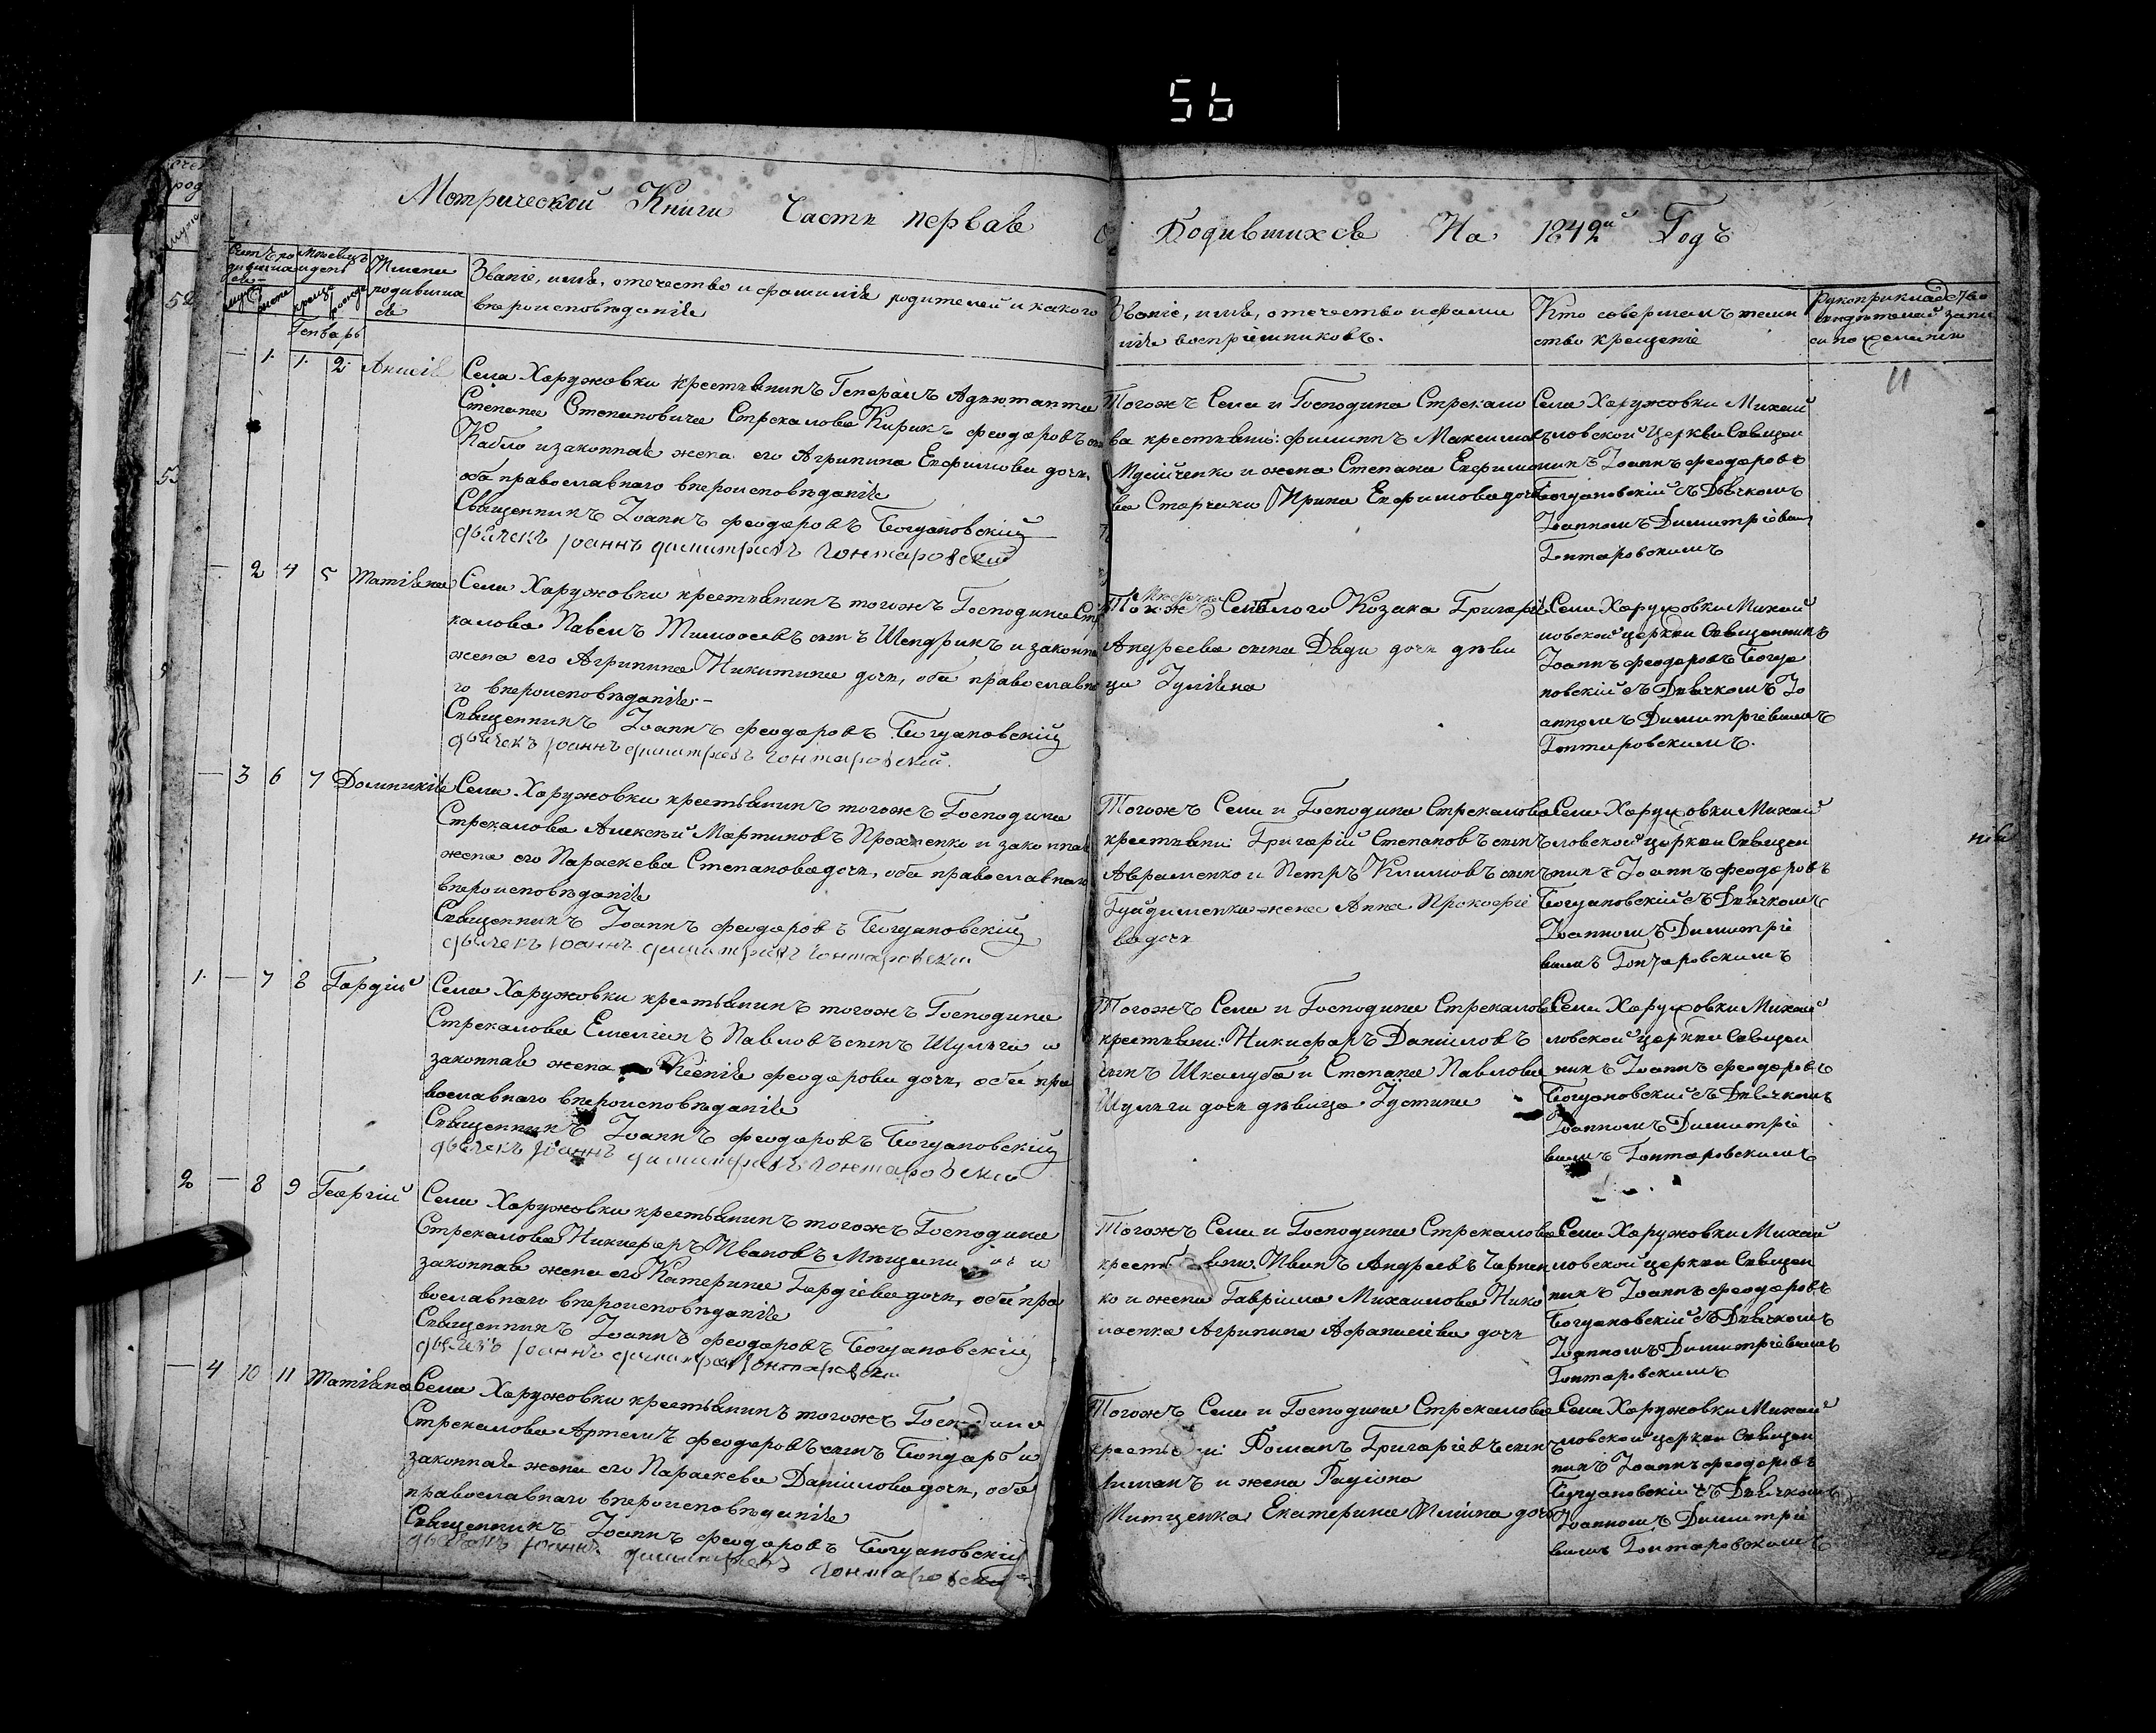 56
Метрической Книги Часть первая
О Родившихся На 1842й Годъ
Имена
родивша
ся
Званіе, имя, отечество и фамилія родителей и какого
вѣроисповѣданія
Званіе, имя, отечество и фами
лія воспріемниковъ.
Кто совершалъ таин
ство крещенія
Рукоприкладство
свидѣтелей запи
си по желанію
Генварь
11
52
— 1. 1. 2 Анисія
Села Харужовки крестьянинъ Генералъ Адъютанта
Степана Степановича Стрекалова Кирикъ Феодоровъ сынъ
и законная жена его Агрипина Ефимова дочь,
оба православнаго вѣроисповѣданія
Священникъ Іоаннъ Феодоровъ Богдановскій
дьячекъ Іоаннъ Димитріевъ Гонтаровский
Тогожъ Села и Господина Стрекало
ва крестьяни: Филиппъ Максимовъ
и жена Степана Ефимо
ва Ирина Ефимова дочь
Села Харужовки Михай
ловской Церкви Священ
никъ Іоаннъ Феодоровъ
Богдановскій съ Дьячкомъ
Іоанномъ Димитріевымъ
Гонтаровскимъ
— 2 4 5 Татіяна
Села Харужовки крестьянинъ тогожъ Господина Стр
калова Павелъ Тимофеевъ сынъ Шендрикъ и законна
жена его Агрипина Никитина дочь, оба православна
го вѣроисповѣданія.—
Священникъ Іоаннъ Феодоровъ Богдановскій
дьячекъ Іоаннъ Димитріевъ Гонтаровский.
Козака Григорія
Андреева сына дочь дѣви
ца Іуліяна
Села Харужовки Михай
ловской церкви Священникъ
Іоаннъ Феодоровъ Богда
новскій съ Дьячкомъ Іо
анномъ Димитріевымъ
Гонтаровскимъ.
— 3 6 7 Домникія
Села Харужовки крестьянинъ тогожъ Господина
Стрекалова Алексѣй Мартиновъ и законная
жена его Параскева Степанова дочь, оба православнаго
вѣроисповѣданія
Священникъ Іоаннъ Феодоровъ Богдановскій
дьячекъ Іоаннъ Димитріевъ Гонтаровский
Тогожъ Села и Господина Стрекалова
крестьяни: Григорій Степановъ сынъ
Авраменко и Петръ Климовъ сынъ
жена Анна Прокофіе
ва дочь
Села Харужовки Михай
ловской церкви Священ
никъ Іоаннъ Феодоровъ
Богдановскій съ Дьячкомъ
Іоанномъ Димитріе
вымъ Гонтаровскимъ
1. — 7 8 Гордій
Села Харужовки крестьянинъ тогожъ Господина
Стрекалова Емелianъ Павловъ сынъ Шульга и
законная жена его Ксенія Феодорова дочь, оба пра
вославнаго вѣроисповѣданія
Священникъ Іоаннъ Феодоровъ Богдановскій
дьячекъ Іоаннъ Димитріевъ Гонтаровский
Тогожъ Села и Господина Стрекалова
крестьяни: Никифоръ Даніиловъ
сынъ Шкалуба и Степана Павлова
Шульги дочь дѣвица Іустина
Села Харужовки Михай
ловской церкви Священ
никъ Іоаннъ Феодоровъ
Богдановскій съ Дьячкомъ
Іоанномъ Димитріе
вымъ Гонтаровскимъ
2 — 8 9 Георгій
Села Харужовки крестьянинъ тогожъ Господина
Стрекалова Никифоръ Ивановъ и
законная жена его Катерина Гордіева дочь, оба пра
вославнаго вѣроисповѣданія
Священникъ Іоаннъ Феодоровъ Богдановскій
дьячекъ Іоаннъ Димитріевъ Гонтаровский
Тогожъ Села и Господина Стрекалова
крестьяни: Иванъ Андреевъ Чарнен
ко и жена Гавріила Михаилова Нико
лаенка Агрипина Афанасіева дочь
Села Харужовки Михай
ловской церкви Священ
никъ Іоаннъ Феодоровъ
Богдановскій съ Дьячкомъ
Іоанномъ Димитріевымъ
Гонтаровскимъ
— 4 10 11 Татіяна
Села Харужовки крестьянинъ тогожъ Господина
Стрекалова Артемъ Феодоровъ сынъ Бондарь и
законная жена его Параскева Даніилова дочь, оба
православнаго вѣроисповѣданія
Священникъ Іоаннъ Феодоровъ Богдановскій
дьячекъ Іоаннъ Димитріевъ Гонтаровский
Тогожъ Села и Господина Стрекалова
крестьяни: Романъ Григоріевъ сынъ
и жена Родіона
Екатерина Иліина дочь
Села Харужовки Михай
ловской церкви Священ
никъ Іоаннъ Феодоровъ
Богдановскій съ Дьячкомъ
Іоанномъ Димитріе
вымъ Гонтаровскимъ